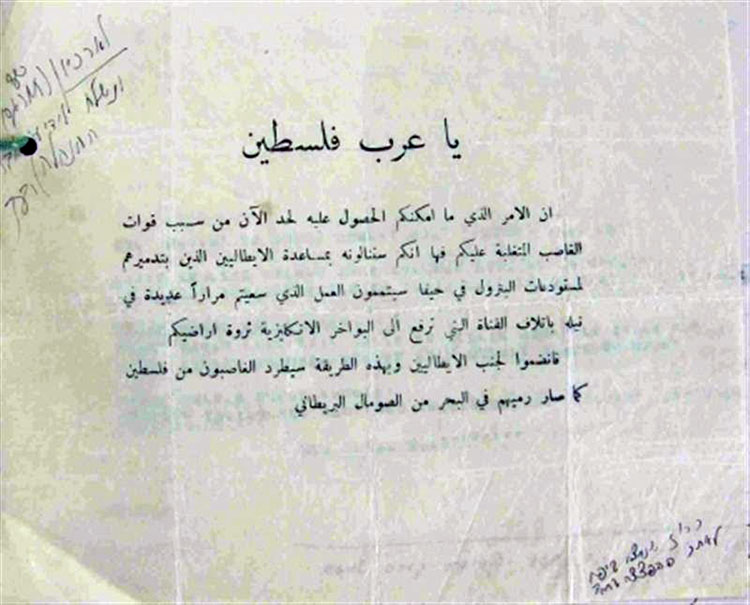 يا عرب فلسطين
ان الامر الذي ما امكنكم الحصول عليه لحد الآن من سبب قوات
الغاصب المتغلبة عليكم فها انكم ستنالونه بمساعدة الايطاليين الذين بتدميرهم
لمستودعات البترول في حيفا سيتممون العمل الذي سعيتم مراراً عديدة في
نيله باتلاف القناة التي ترفع الى البواخر الانكليزية ثروة اراضيكم
فانضموا لجنب الايطاليين وبهذه الطريقة سيطرد الغاصبون من فلسطين
كما صار رميهم في البحر من الصومال البريطاني